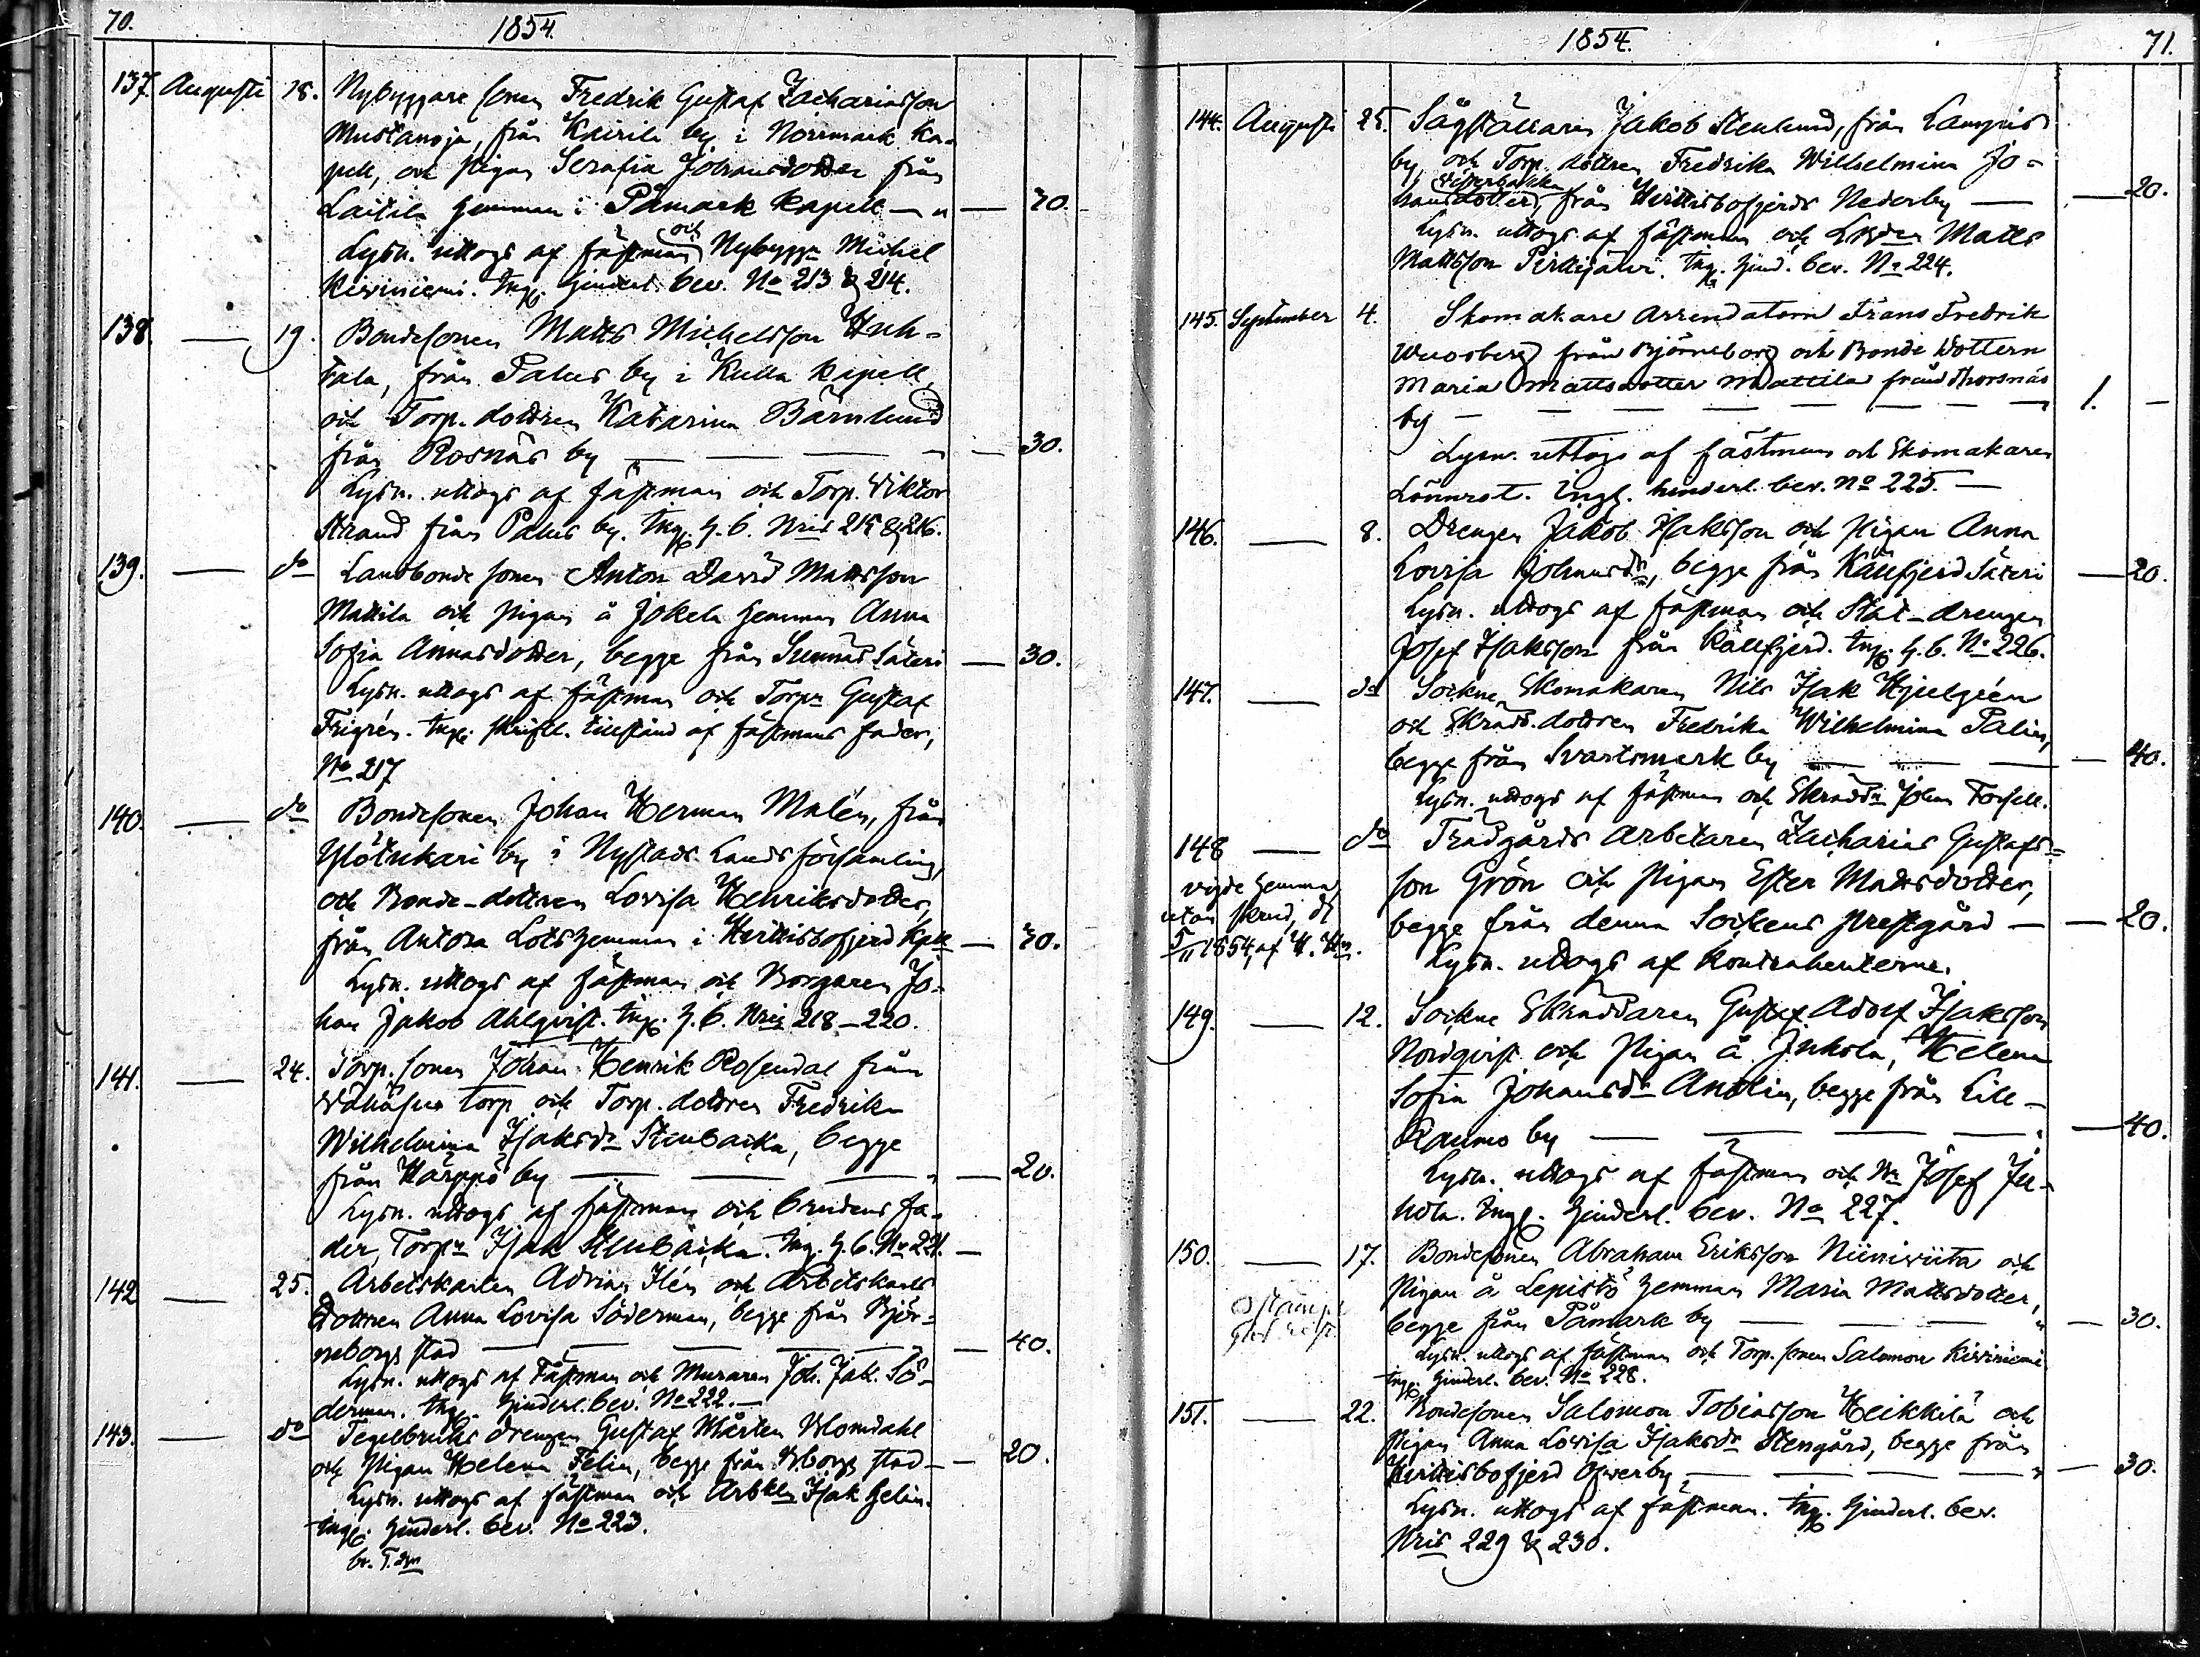 70.
1854.
137. Augusti 18. Nybyggare sonen Fredrik Gustaf Zachariasson
Mustanoja, från Kairila by i Norrmark Ka-
pell, och Pigan Serafia Johansdotter från
Laitila hemman i Påmark Kapell — " — 70.
Lysn. uttogs af fästman och Nybyggn Michel
Kiviniemi. Ingl. hinderl. bev. No 213 & 214.
138. — 19. Bondesonen Matts Michelsson Huh-
tala, från Palus by i Kulla Kapell,
och Torp. dottren Katarina Bärnlund
från Rosnäs by — — — " — 30.
Lysn. uttogs af fästman och Torp. Viktor
Strand från Palus by. Ingl. h. b. Nris 215 & 216.
139. — do Landbonde sonen Anton David Mattsson
Mattila och Pigan å Jokela hemman Anna
Sofia Annasdotter, begge från Sunnäs Säteri — 30.
Lysn. uttogs af fästman och Torpn Gustaf
Frigrén. Ingl. skriftl. tillstånd af fästmans fader,
No 217
140. — do Bondesonen Johan Herman Malén, från
by i Nystads Landsförsamling,
och Bonde-dottren Lovisa Henriksdotter,
från Antora Lotshemman i Hvittisbofjerd Kpll — 70.
Lysn. uttogs af fästman och Borgaren Jo-
han Jakob Ahlqvist. Ingl. h. b. Nris 218–220.
141. — 24. Torp. sonen Johan Henrik Rosendal från
torp och Torp. dottren Fredrika
Wilhelmina Isaksdr Stenbacka, begge
från Härppö by — — — " — 20.
Lysn. uttogs af fästman och brudens fa-
der, Torpn Isak Stenbacka. Ing. h. b. No 221. —
142 — 25. Arbetskarlen Adrian Ilén och Arbetskarls
dottren Anna Lovisa Söderman, begge från Björ-
neborgs stad — — — — 40.
Lysn. uttogs af Fästman och Muraren Joh. Jak. Sö-
derman. Ingl. hinderl. bev. No 222. —
143. — do Tegelbruks drengen Gustaf Mårten Blomdahl
och Pigan Helena Felin, begge från Bborgs stad — — 20.
Lysn. uttogs af fästman och Arbkln Isak Helin.
Ingl. hinderl. bev. No 223.
71.
1854.
144. Augusti 25. Sågställaren Jakob Stenlund, från Lampis
by, och Torp. dottren Fredrika Wilhelmina Jo-
Westerbacka
hansdotter, från Hvittisbofjerds Nederby — — 20.
Lysn. uttogs af fästman och Matts
Mattsson Pitkäjärvi. Ingl. hind. bev. No 224.
145. September 4. Skomakare Arrendatorn Frans Fredrik
Wuosberg från Björneborg och Bonde Dottern
Maria Mattsdotter Mattila från Thorsnäs
by — — — — — — — 1. —
Lysn. uttogs af fästman och Skomakaren
Lönnrot. Ingl. hinderl. bev. No 225. —
146. — 8. Drengen Jakob Isaksson och Pigan Anna
Lovisa Johansdr, begge från Källfjerd Säteri — 20.
Lysn. uttogs af fästman och Stat-drengen
Josef Isaksson från Källfjerd. Ingl. h. b. No 226.
147. — do Sockne Skomakaren Nils Isak Hjelgrén
och Skradd. dottren Fredrika Wilhelmina Palin,
begge från Svartsmark by — — — — 40.
Lysn. uttogs af fästman och Skraddn Johan Forsell.
148 — do Trädgårds Arbetaren Zacharias Gustafs-
son Grön och Pigan Ester Mattsdotter,
begge från denna Sockens prestgård — — 20.
Lysn. uttogs af Kontrahenterne.
vigde hemma,
utan skrud, d.
5/11 1854, af H. Hn.
149. — 12. Sockne Skraddaren Gustaf Adolf Isaksson
Nordqvist och Pigan å Juhola, Helena
Sofia Johansdr Andlin, begge från Lill-
Raumo by — — — — — 40.
Lysn. uttogs af fästman och Josef Ju-
hola. Ingl. hinderl. bev. No 227.
150. — 17. Bondesonen Abraham Eriksson Niinivirta och
Pigan å Lepistö hemman Maria Mattsdotter,
begge från Påmark by — — — " — 30.
Lysn. uttogs af fästman och Torp. sonen Salomon Kiviniemi
Ingl. hinderl. bev. No 228.
151. — 22. Bondesonen Salomon Tobiasson Heikkilä och
Pigan Anna Lovisa Isaksdr Stengård, begge från
Hvittisbofjerd Öfverby — — — " — 30.
Lysn. uttogs af fästman. Ingl. hinderl. bev.
Nris 229 & 230.